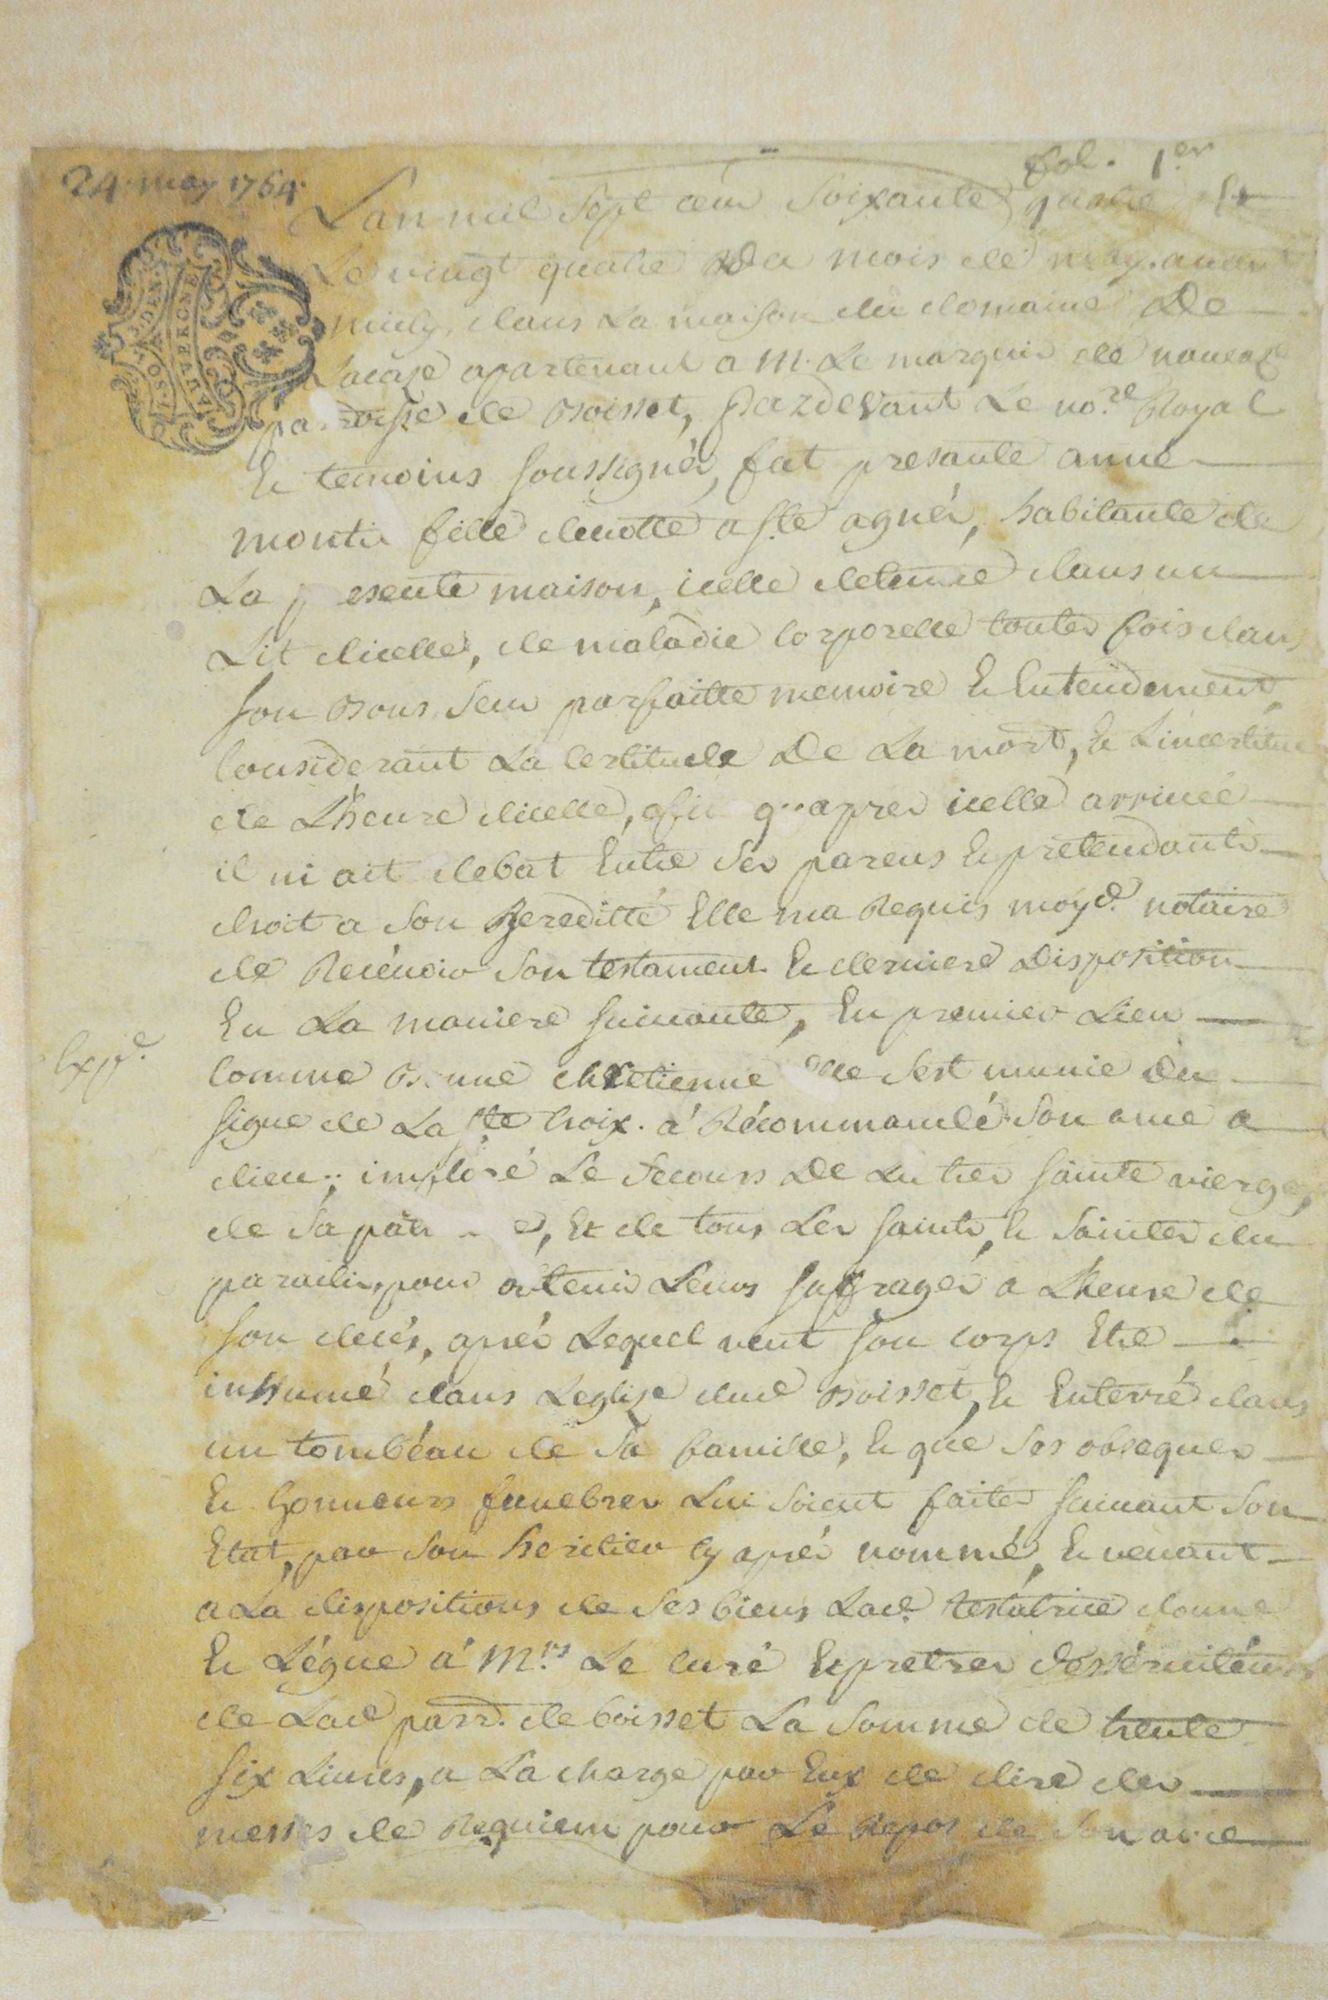 fol. 1er
24 may 1764.
Lan mil sept cens soixante quatre et
Le vingt quatre du mois de may. avant
midy, dans La maison du domaine De
Lacaze apartenant a M. Le marquis de
paroisse de Boisset, pardevant Le nore. Royal
Et temoins soussignés, fut presante anne
montin fille devotte a ste agnés, habitante de
La presente maison, icelle detenue dans un
Lit dicelle, de maladie corporelle toutes fois dans
son bons sens parfaitte memoire Et Entendement,
Considerant La Certitude De La mort, Et Lincertitude
de Lheure dicelle, afin quapres icelle arrivée
il ni ait debat Entre ses parens Et pretendants
droit a son heredité Elle ma Requis moyd. notaire
de Recevoir son testament Et derniere Disposition
En La maniere suivante, En premier Lieu
Comme bonne chretienne elle sest munie du
signe de La ste Croix. a Récommandé son ame a
dieu, imploré Le secours De La tres sainte vierge,
de sa patronne, Et de tous Les saints, Et saintes du
paradis, pour obtenir Leurs suffrages a Lheure de
son decés, aprés Lequel veut son corps Etre
inhumé dans Leglise dud Boisset, Et Enterré dans
un tombéau de sa famille, Et que ses obseques
Et honneurs funebres Lui soient faites suivant son
Etat, par son heritier cy aprés nommé, Et venant
a La dispositions de ses biens Lad. testatrice donne
Et Légue a Mrs Le curé Et pretres désserviteurs
de Lad parr. de boisset La somme de trente
six Livres, a La charge par Eux de dire des
messes de Requiem pour Le Repos de son ame
Expd.
G. SO. A. DEN.
AUVERGNE